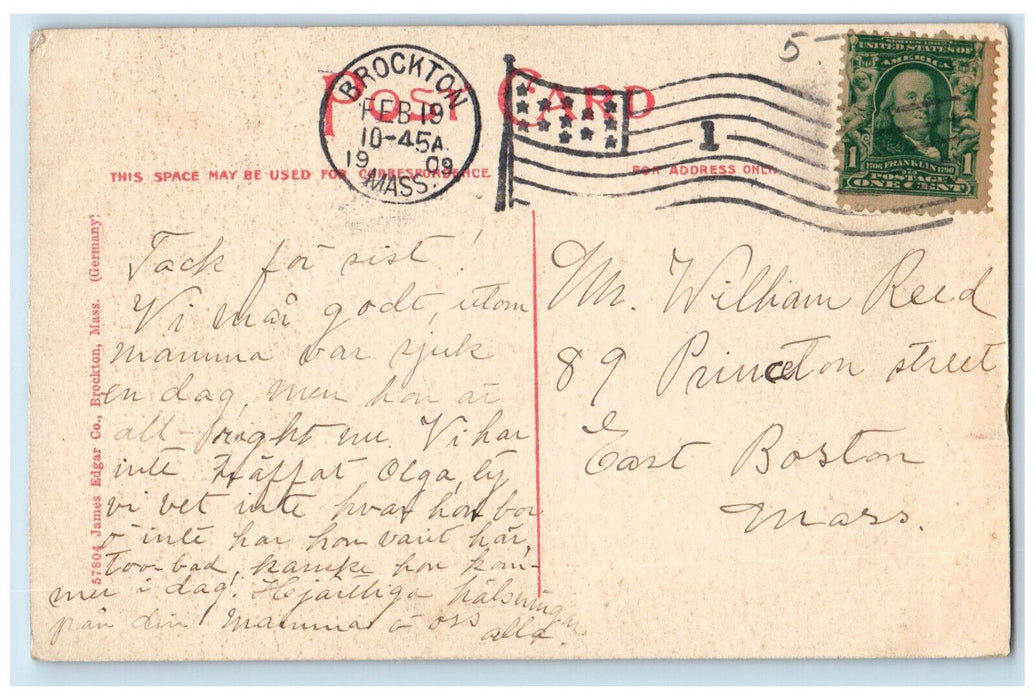 5-
SERIES 1902
UNITED STATES OF
AMERICA
1 1706 FRANKLIN 1790 1
POSTAGE
ONE CENT
BROCKTON
FEB 19
10-45A
19 09
MASS.
1
POST CARD
THIS SPACE MAY BE USED FOR CORRESPONDENCE
FOR ADDRESS ONLY
57804 James Edgar Co., Brockton, Mass. (Germany)
Tack för sist!
Vi mår godt, utom
mamma var sjuk
en dag, men hon är
all-right nu. Vi har
inte träffat Olga, ty
vi vet inte hvar hon bor
o inte har hon varit här,
too bad, kanske hon kom-
mer i dag! Hjärtliga hälsningar
från din Mamma o oss
alla.
Mr. William Reed
89 Princeton street
East Boston
Mass.